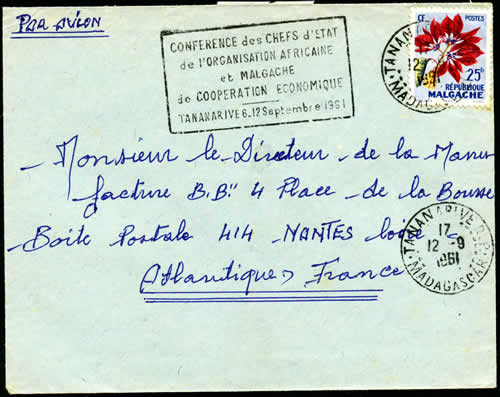 PAR AVION
CONFERENCE des CHEFS d'ETAT
de l'ORGANISATION AFRICAINE
et MALGACHE
de COOPERATION ECONOMIQUE
TANANARIVE 6.12 Septembre 1961
CF
POSTES
25f
RÉPUBLIQUE
MALGACHE
TANANA
17
12
MADAGASCAR
- Monsieur le Directeur - de la Manu-
facture B.B" 4 Place - de la Bourse
- Boite Postale 414 - NANTES loire
Atlantique France
TANANARIVE R.P.
17
12 -9
1961
MADAGASCAR